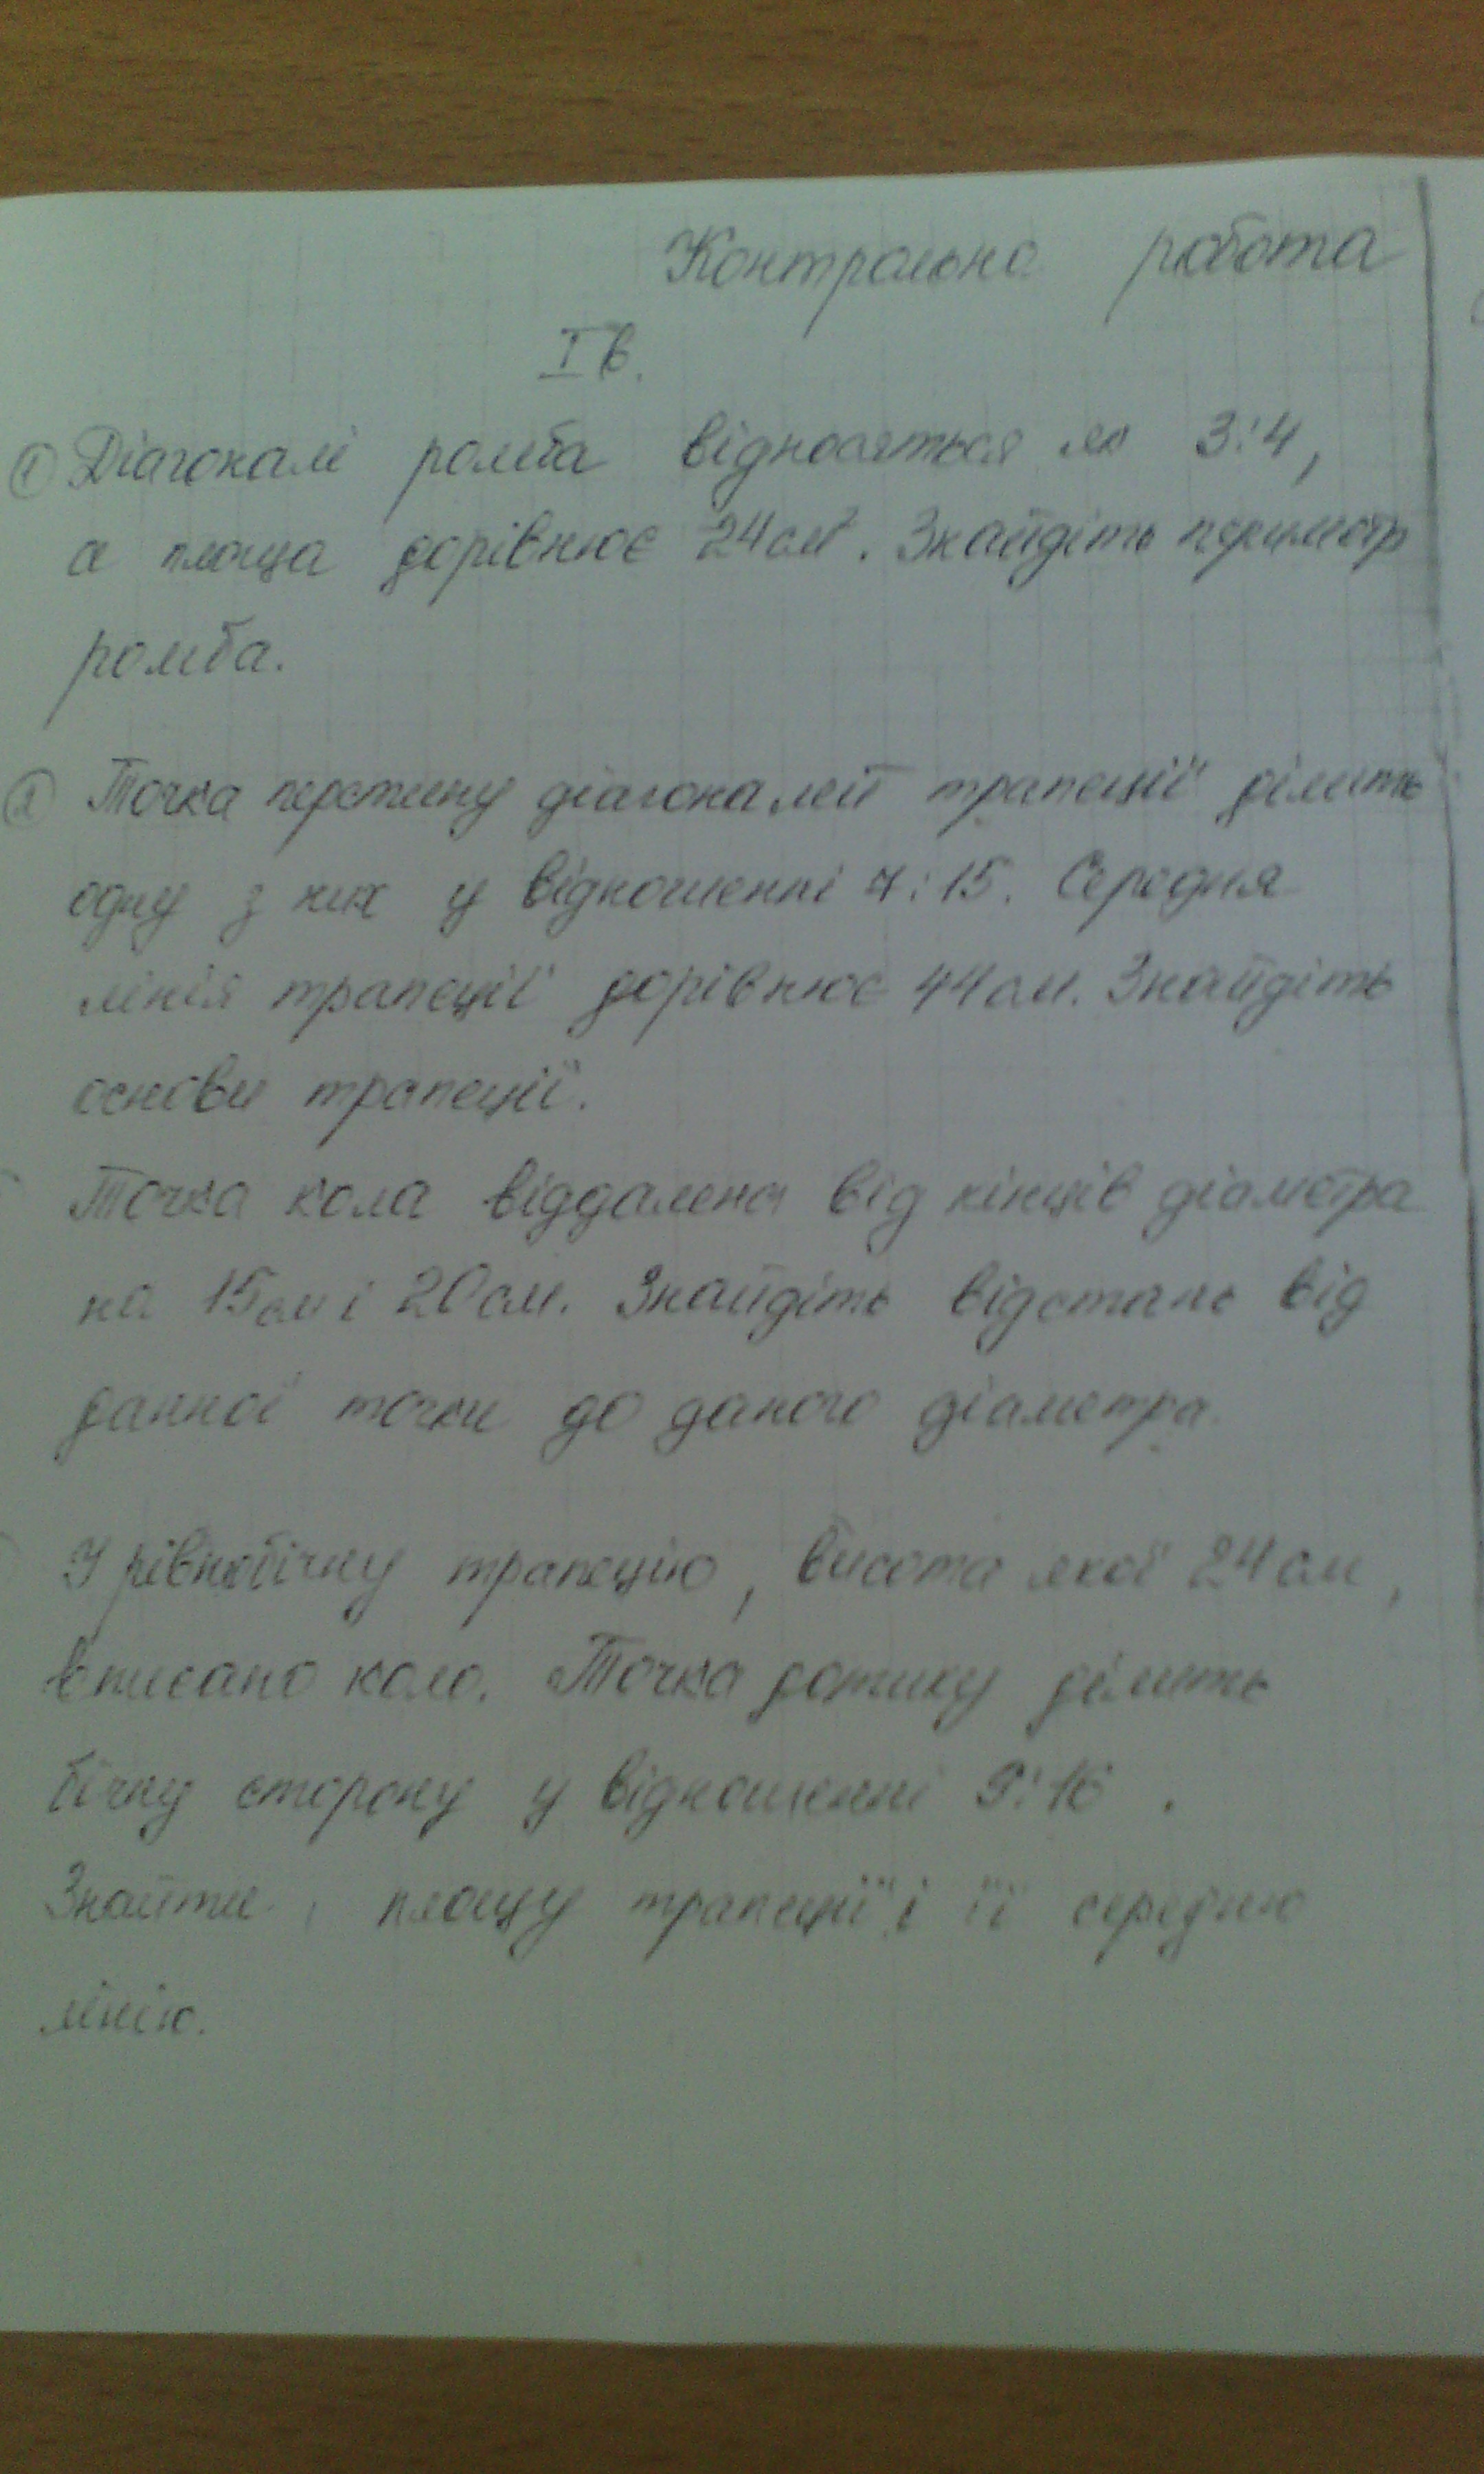 Контрольна робота
І в.
① Діагоналі ромба відносяться як 3:4,
а площа дорівнює 24см². Знайдіть периметр
ромба.
② Точка перетину діагоналей трапеції ділить
одну з них у відношенні 7:15. Середня
лінія трапеції дорівнює 44см. Знайдіть
основи трапеції.
Точка кола віддалена від кінців діаметра
на 15см і 20см. Знайдіть відстань від
данної точки до даного діаметра.
У рівнобічну трапецію, висота якої 24см,
вписано коло. Точка дотику ділить
бічну сторону у відношенні 9:16.
Знайти площу трапеції і її середню
лінію.